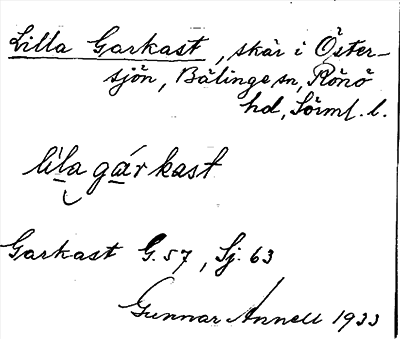 Lilla Garkast, skär i Öster-
sjön, Bälinge sn, Rönö
hd, Sörml. l.
líla gár kast
Garkast G. 57, Sj. 63
Gunnar Annell 1933